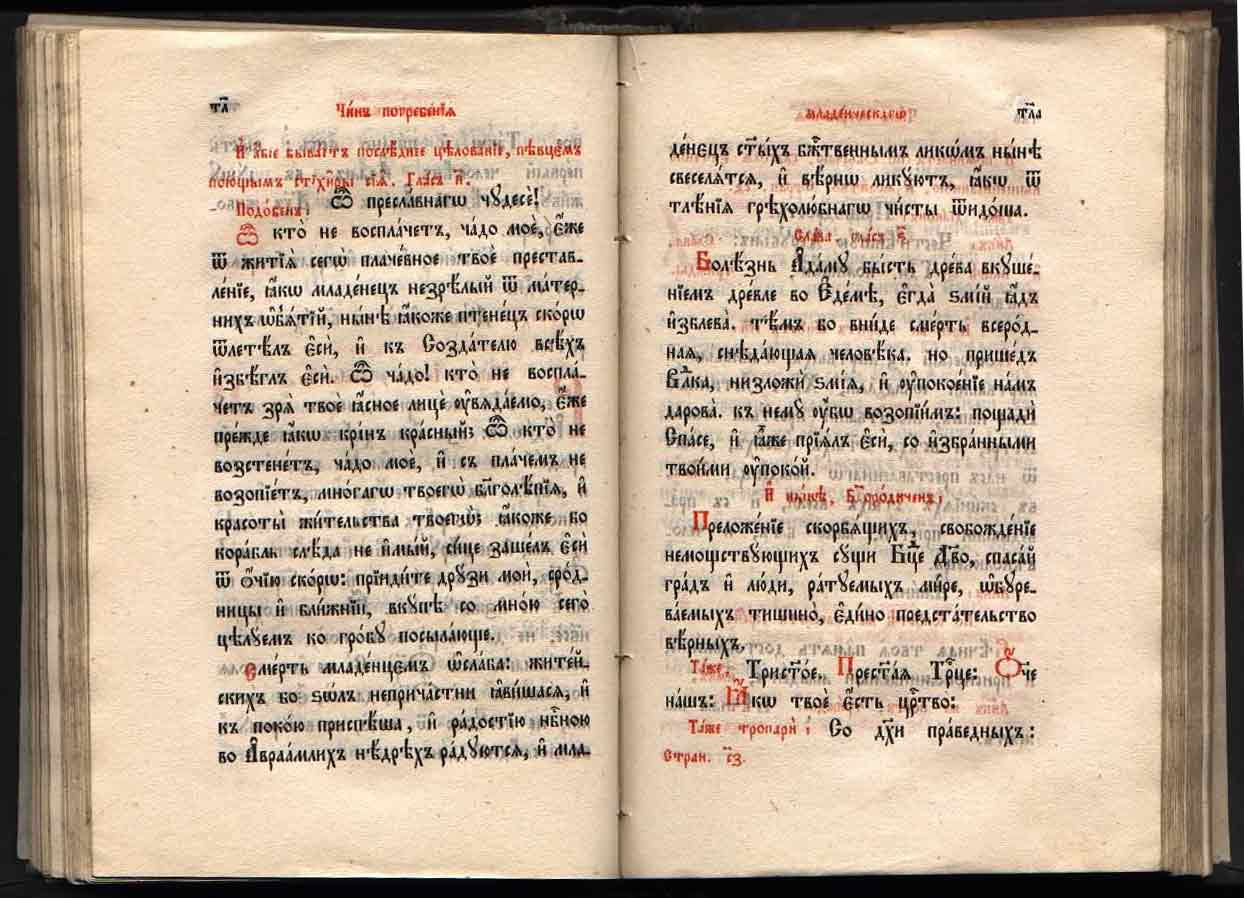 тл҃
Чи́нъ погребе́нїѧ
И҆ а҆́бїе быва́етъ послѣ́днее цѣлова́нїе, пѣвцє́мъ
пою́щымъ стїхи̑ры сїѧ̑. Гла́съ и҃.
Подо́бенъ: Ѽ пресла́внагѡ чꙋдесѐ!
Ѽ кто̀ не воспла́четъ, ча́до моѐ, є҆́же
ѿ житїѧ̀ сегѡ̀ плаче́вное твоѐ преставле́-
ле́нїе, ꙗ҆́кѡ младе́нецъ незрѣ́лый ѿ ма́тер-
нихъ ѡ҆б̾ѧ́тїй, ны́нѣ ꙗ҆́коже птене́цъ ско́рѡ
ѿлетѣ́лъ є҆сѝ, и҆ къ Созда́телю всѣ́хъ
и҆збѣ́глъ є҆сѝ. Ѽ ча́до! кто̀ не воспла́-
четъ зрѧ̀ твоѐ ꙗ҆́сное лицѐ ᲂу҆вѧда́емо, є҆́же
пре́жде ꙗ҆́кѡ кри́нъ кра́сный; Ѽ кто̀ не
возстене́тъ, ча́до моѐ, и҆ съ пла́чемъ не
возопїе́тъ, мно́гагѡ твоегѡ̀ бл҃голѣ́пїѧ, и҆
красоты̀ жи́тельства твоегѡ̀; ꙗ҆́коже бо
кора́бль слѣда̀ не и҆мы́й, си́це заше́лъ є҆сѝ
ѿ ѻ҆́чїю ско́рѡ: прїиди́те дрꙋ́зи моѝ, сро́д-
ницы и҆ бли́жнїи, вкꙋ́пѣ со мно́ю сего̀
цѣлꙋ́емъ ко гро́бꙋ посыла́юще.
Сме́рть младе́нцємъ ѡ҆сла́ба: жите́й-
скихъ бо ѕѡ́лъ неприча́стни ꙗ҆ви́шасѧ, и҆
къ поко́ю приспѣ́ша, и҆ ра́достїю нб҃но́ю
во А҆враа́млихъ нѣ́дрѣхъ ра́дꙋютсѧ, и҆ мла-
младе́нческагѡ
тл҃а
де́нєцъ ст҃ы́хъ бж҃твеннымъ ли́кѡмъ ны́нѣ
свеселѧ́тсѧ, и҆ вѣ́рнѡ ликꙋ́ютъ, ꙗ҆́кѡ ѿ
тлѣ́нїѧ грѣхолю́бнагѡ чи́сты ѿидо́ша.
Сла́ва, гла́съ ѕ҃.
Болѣ́знь А҆да́мꙋ бы́сть дре́ва вкꙋше́-
нїемъ дре́вле во Є҆де́мѣ, є҆гда̀ ѕмі́й ꙗ҆́дъ
и҆зблева̀. тѣ́мъ бо вни́де сме́рть всеро́д-
наѧ, снѣда́ющаѧ человѣ́ка. но прише́дъ
вл҃ка, низложѝ ѕмі́ѧ, и҆ ᲂу҆покое́нїе на́мъ
дарова̀. къ немꙋ̀ ᲂу҆́бѡ возопїи́мъ: пощадѝ
Сп҃се, и҆ ꙗ҆́же прїѧ́лъ є҆сѝ, со и҆збра́нными
твои́ми ᲂу҆поко́й.
И҆ ны́нѣ, Бг҃оро́диченъ:
Преложе́нїе скорбѧ́щихъ, свобожде́нїе
немощствꙋ́ющихъ сꙋ́щи Бц҃е Дв҃о, спаса́й
гра́дъ и҆ лю́ди, ра́тꙋемыхъ ми́ре, ѡ҆бꙋре-
ва́емыхъ тишино̀, є҆ди́но предста́тельство
вѣ́рныхъ.
Та́же, Трист҃о́е. Прест҃а́ѧ Трⷪ҇це: Ѻ҆́ч҃е
на́шъ: Ꙗ҆́кѡ твоѐ є҆́сть црⷭ҇тво:
Та́же тропарѝ: Со дх҃и пра́ведныхъ:
Стран. с҃з.